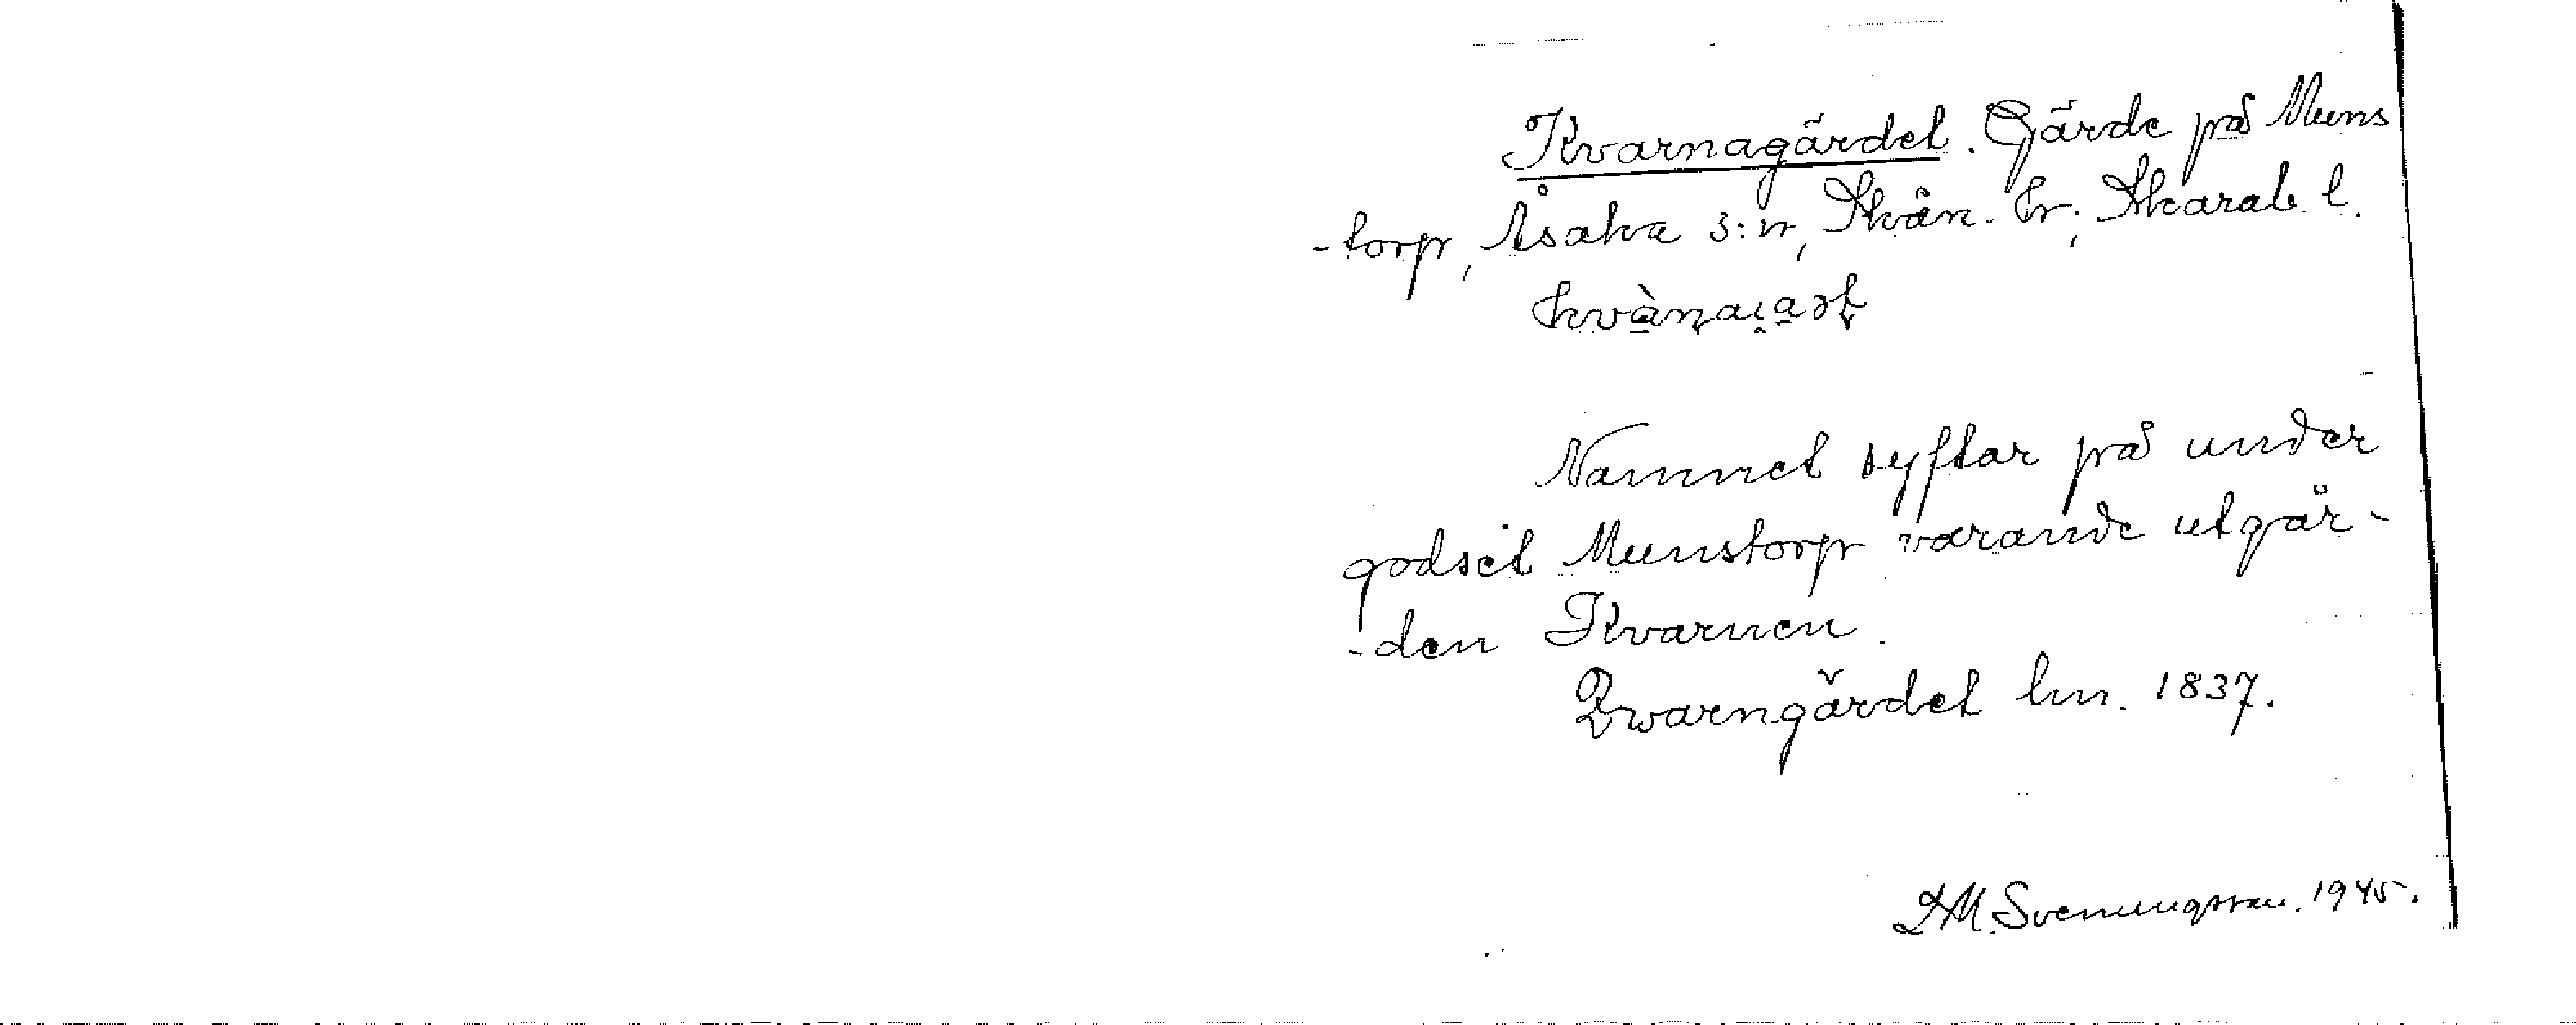 Kvarnagärdet. Gärde på Muns
-torp, Åsaka s:n, Skån. hr; Skarab. l.
Namnet syftar på under
godset Munstorp varande utgår-
-den Kvarnen.
Qwarngärdet lm. 1837.
Svenungsson. 1945.